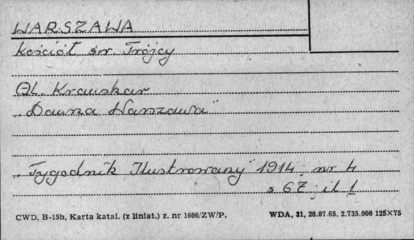 WARSZAWA
kościół św. Trójcy
Al. Kraushar
"Dawna Warszawa"
"Tygodnik Ilustrowany" 1914 nr 4
s 67 il 1
CWD, B-15b, Karta katal. (z liniat.) z. nr 1606/ZW/P. WDA, 31, 20.07.65. 2.735.000 125×75